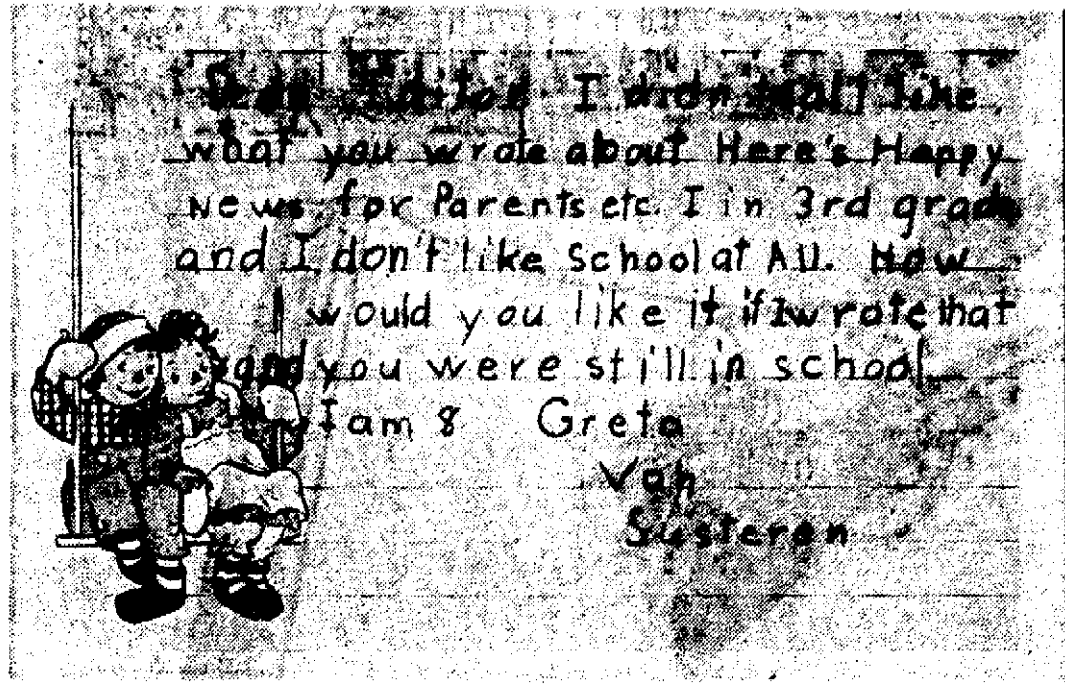 Dear Editor I didn't all like
what you wrote about Here's Happy
News for Parents etc. I in 3rd grade
and I don't like School at All. How
would you like it if I wrote that
and you were still in school
I am 8 Greta
Van
Susteren